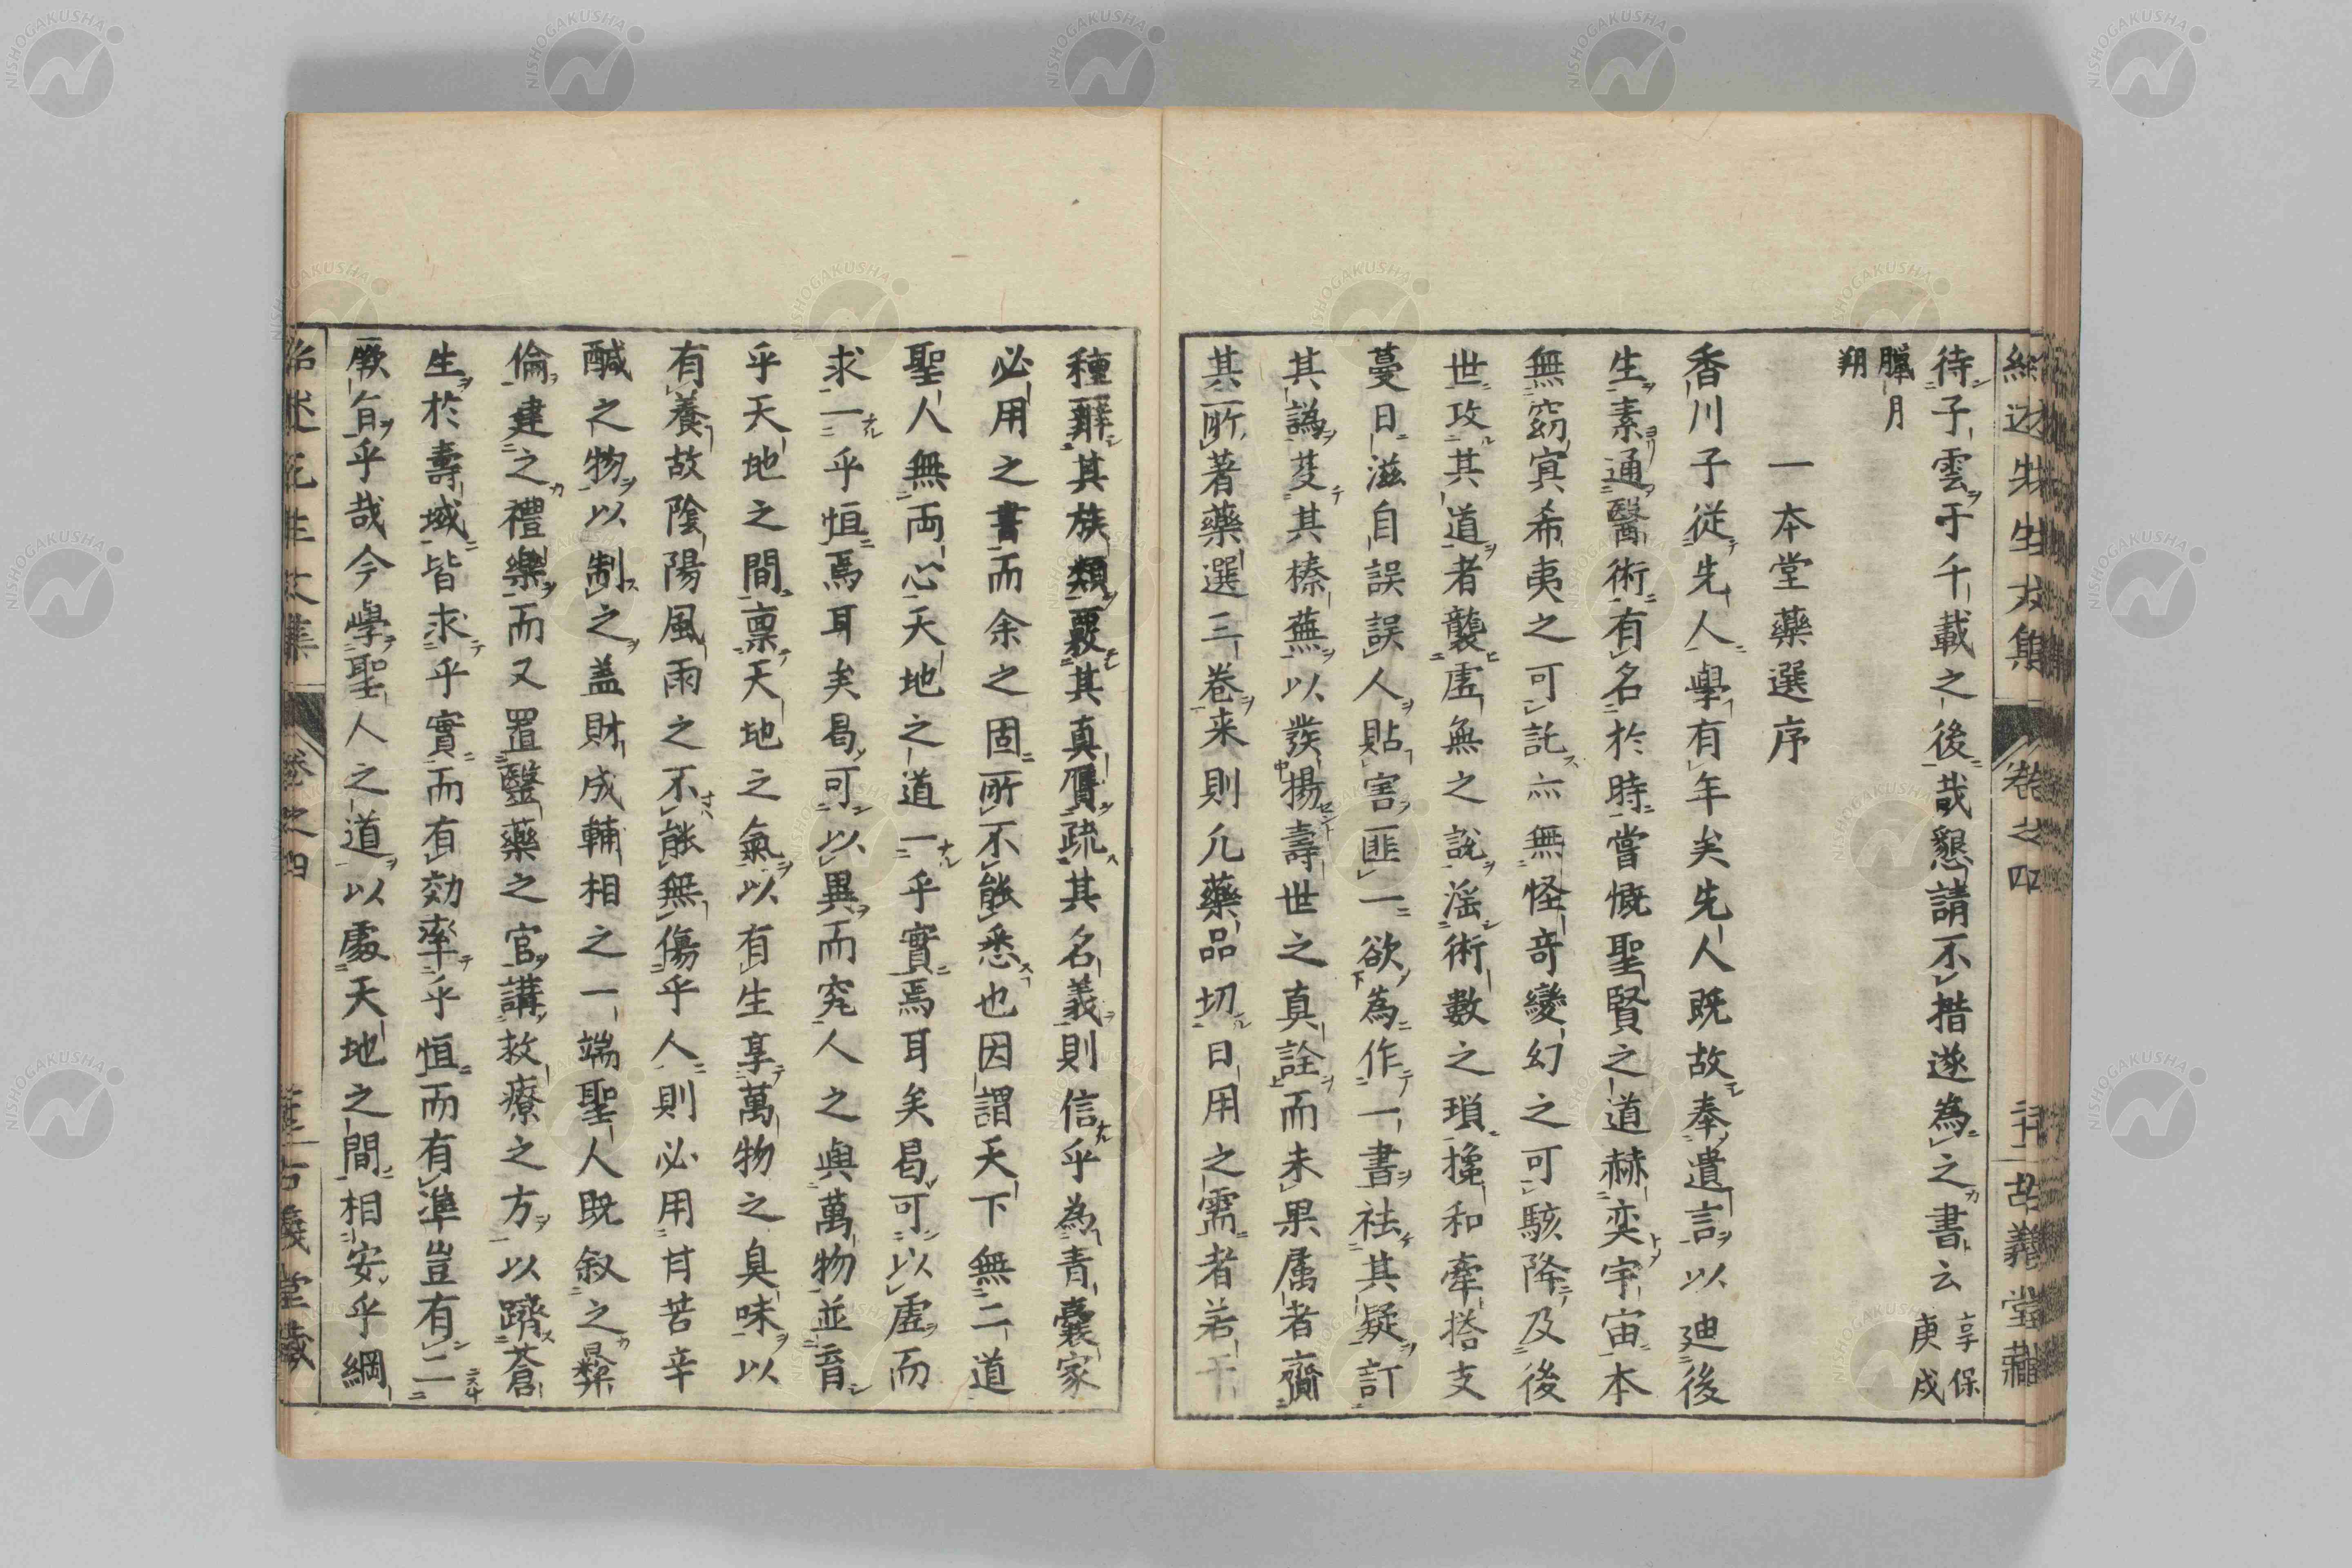 紹述先生文集 卷之四 古義堂藏
待子雲于千載之後哉懇請不措遂為之書云享保庚戌
臘月朔
一本堂藥選序
香川子從先人學有年矣先人既故奉遺言以迪後
生素通醫術有名於時嘗慨聖賢之道赫奕宇宙本
無窈冥希夷之可託亦無怪奇變幻之可駭降及後
世攻其道者襲虛無之說滛術數之瑣搀和牽搭支
蔓日滋自誤誤人貼害匪一欲為作一書祛其疑訂
其譌芟其榛蕪以發揚壽世之真詮而未果属者齎
其所著藥選三卷来則凡藥品切日用之需者若干
種辨其族類覈其真贋疏其名義則信乎為青囊家
必用之書而余之固所不能悉也因謂天下無二道
聖人無両心天地之道一乎實焉耳矣曷可以虛而
求一乎恒焉耳矣曷可以異而究人之與萬物並育
乎天地之間禀天地之氣以有生享萬物之臭味以
有養故陰陽風雨之不能無傷乎人則必用甘苦辛
醎之物以制之盖財成輔相之一端聖人既叙之彝
倫建之禮樂而又置醫藥之官講救療之方以躋蒼
生於壽域皆求乎實而有効率乎恒而有準豈有二
厥旨乎哉今學聖人之道以處天地之間相安乎綱
紹述先生文集 卷之四 古義堂藏